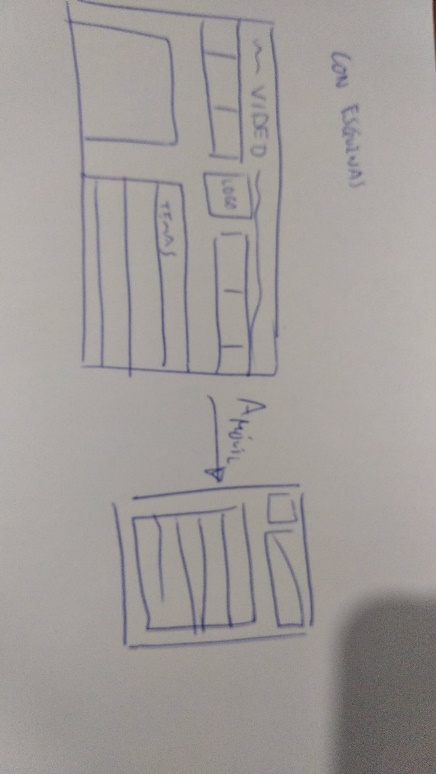 CON ESQUINAS
VIDEO
LOGO
TEMAS
A MÓVIL